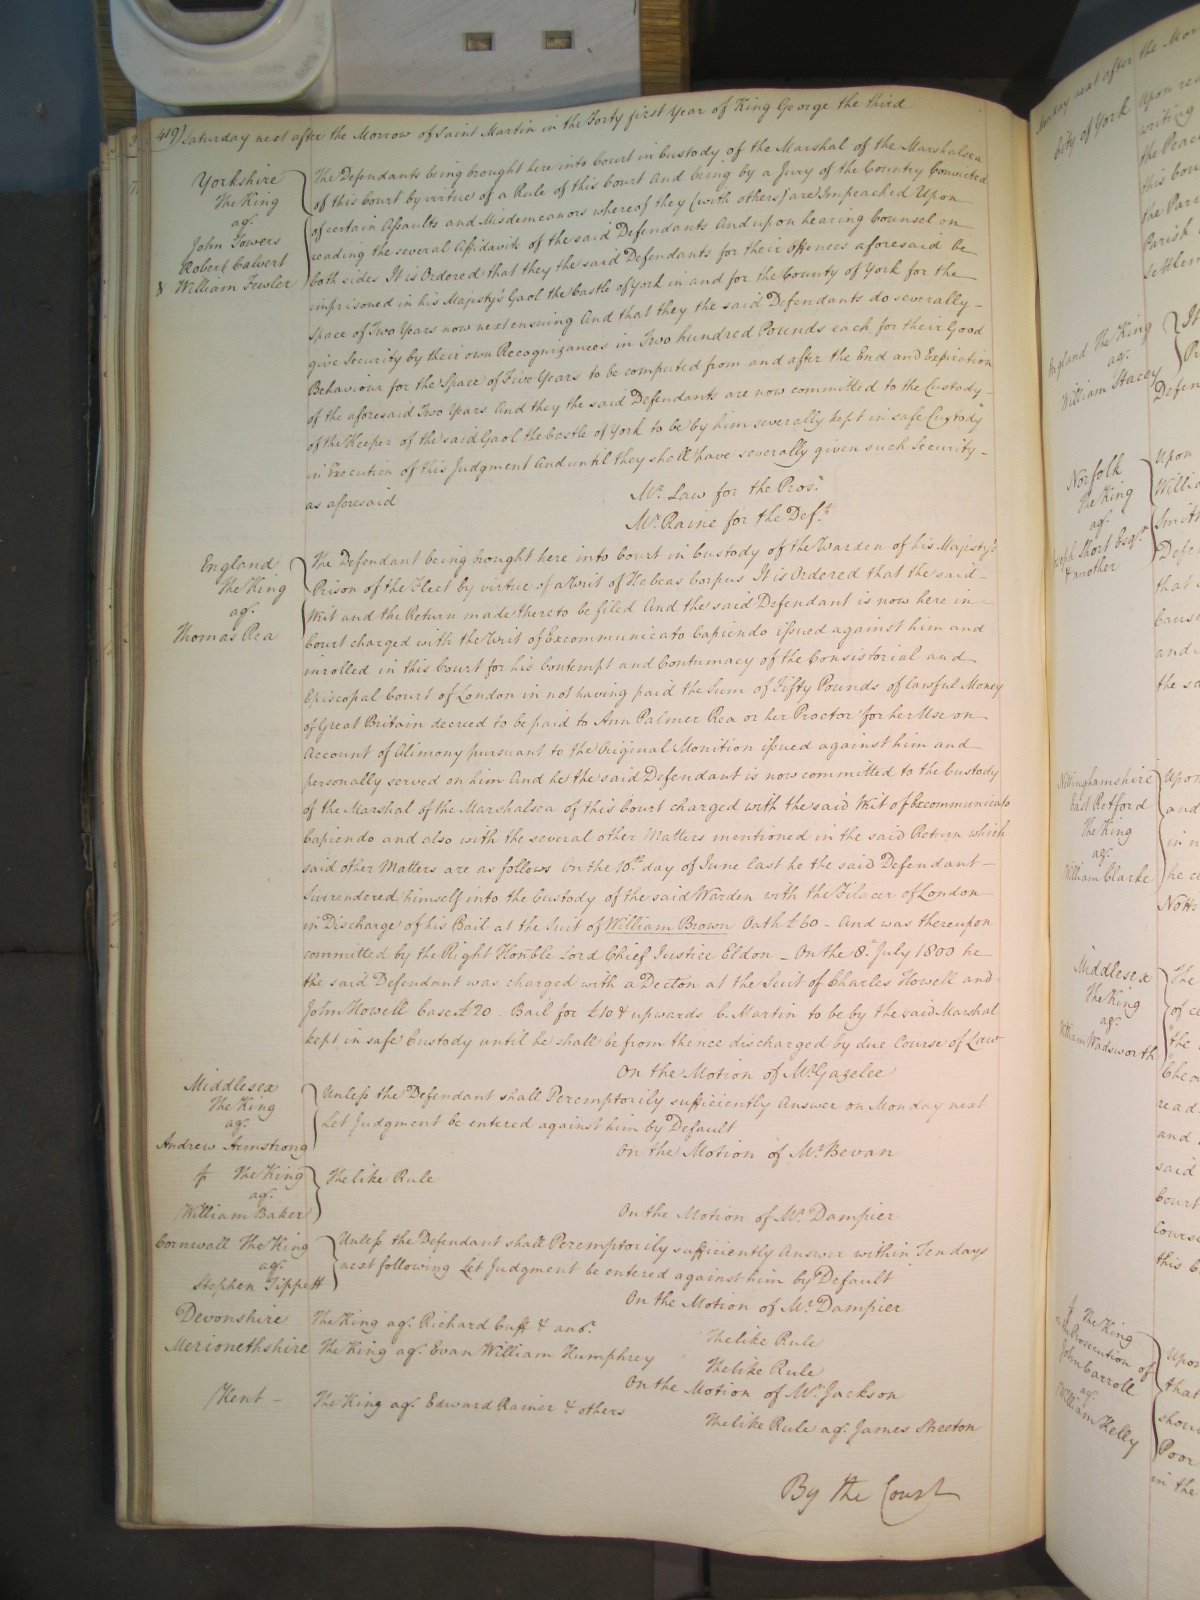 419) Saturday next after the Morrow of Saint Martin in the Forty first Year of King George the third
Yorkshire
The King
agt.
John Towers
Robert Calvert
& William Fewler
The Defendants being brought here into Court in Custody of the Marshal of the Marshalsea
of this Court by virtue of a Rule of this Court And being by a Jury of the Country Convicted
of certain Assaults and Misdemeanors whereof they (with others) are Impeached Upon
reading the several Affidavits of the said Defendants And upon hearing Counsel on
both sides It is Ordered that they the said Defendants for their Offences aforesaid be
imprisoned in his Majesty's Gaol the Castle of York in and for the County of York for the
Space of Two Years now next ensuing And that they the said Defendants do severally
give Security by their own Recognizances in Two hundred Pounds each for their Good
Behaviour for the Space of Five Years to be computed from and after the End and Expiration
of the aforesaid Two Years And they the said Defendants are now committed to the Custody
of the Keeper of the said Gaol the Castle of York to be by him severally kept in safe Custody
in Execution of this Judgment And until they shall have severally given such Security
as aforesaid
Mr. Law for the Prosr.
Mr. Raine for the Defts.
England
The King
agt.
Thomas Rea
The Defendant being brought here into Court in Custody of the Warden of his Majesty's
Prison of the Fleet by virtue of a Writ of Habeas Corpus It is Ordered that the said
Writ and the Return made thereto be filed And the said Defendant is now here in
Court charged with the Writ of Excommunicato Capiendo issued against him and
inrolled in this Court for his Contempt and Contumacy of the Consistorial and
Episcopal Court of London in not having paid the Sum of Fifty Pounds of lawful Money
of Great Britain decreed to be paid to Ann Palmer Rea or her Proctor for her Use on
Account of Alimony pursuant to the Original Monition issued against him and
personally served on him And he the said Defendant is now committed to the Custody
of the Marshal of the Marshalsea of this Court charged with the said Writ of Excommunicato
Capiendo and also with the several other Matters mentioned in the said Return which
said other Matters are as follows On the 10th day of June last he the said Defendant
Surrendered himself into the Custody of the said Warden with the Filacer of London
in Discharge of his Bail at the Suit of William Brown Oath £60 - And was thereupon
committed by the Right Honble Lord Chief Justice Eldon - On the 8th July 1800 he
the said Defendant was charged with a Decton at the Suit of Charles Howell and
John Howell Case £20. Bail for £10 & upwards C. Martin to be by the said Marshal
kept in safe Custody until he shall be from thence discharged by due Course of Law
On the Motion of Mr. Gazelee
Middlesex
The King
agt.
Andrew Armstrong
Unless the Defendant shall Peremptorily sufficiently Answer on Monday next
Let Judgment be entered against him by Default
On the Motion of Mr. Bevan
The King
agt.
William Baker
The like Rule
On the Motion of Mr. Dampier
Cornwall The King
agt.
Stephen Tippett
Unless the Defendant shall Peremptorily sufficiently Answer within Ten days
next following Let Judgment be entered against him by Default
On the Motion of Mr. Dampier
Devonshire The King agt. Richard Cuff & anor.
The like Rule
Merionethshire The King agt. Evan William Humphrey
The like Rule
On the Motion of Mr. Jackson
Kent - The King agt. Edward Rainer & others
The like Rule agt. James Skeeton
By the Court
Monday next after the
City of York
Upon
writing
the Peace
this
the Pari
Parish
Settlem
England The King
agt.
William Stacey
It
Defen
Norfolk
The King
agt.
Short Esqr.
& another
Upon
Willia
Smith
Defe
that
Cause
and
the sa
Nottinghamshire
East Retford
The King
agt.
William Clarke
Upon
and
in
he
Notti
Middlesex
The King
agt.
William Wadsworth
The
of ce
the
read
and
said
Court
Course
this
The King
Prosecution of
John Carroll
agt.
William Kelly
Upon
that
shou
Poor
in the